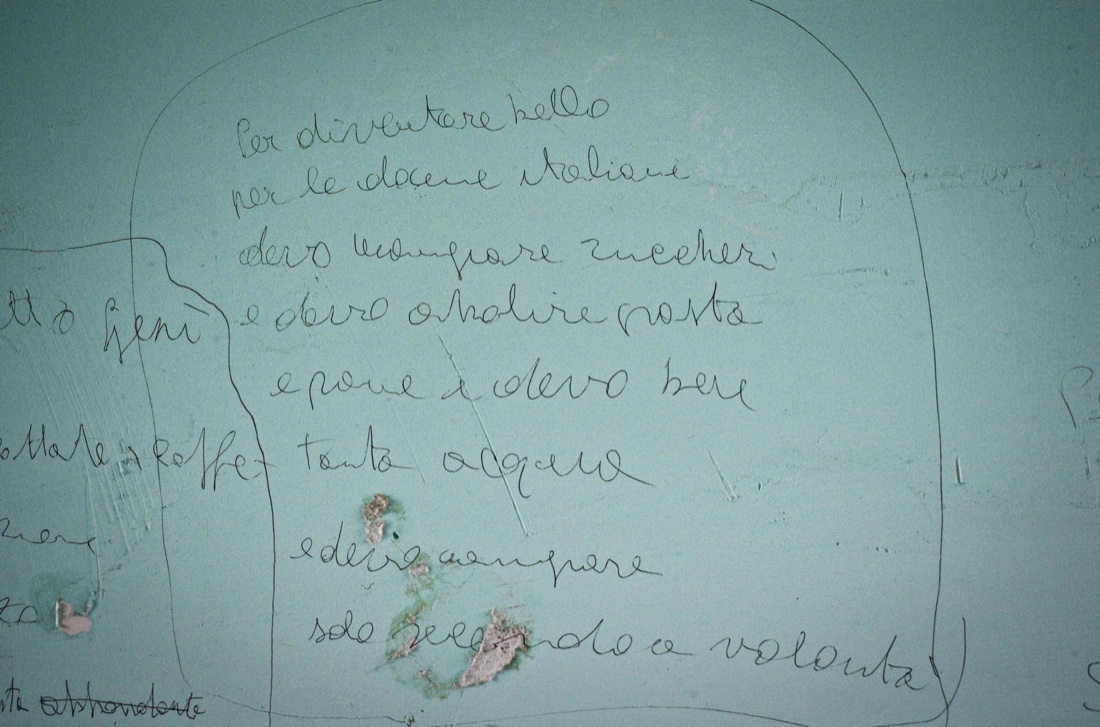 Per diventare bello
per le donne italiane
devo mangiare zuccheri
e devo abolire pasta
e pane e devo bere
tanta acqua
e devo mangiare
solo secondo a volontà
caffè
abbondante